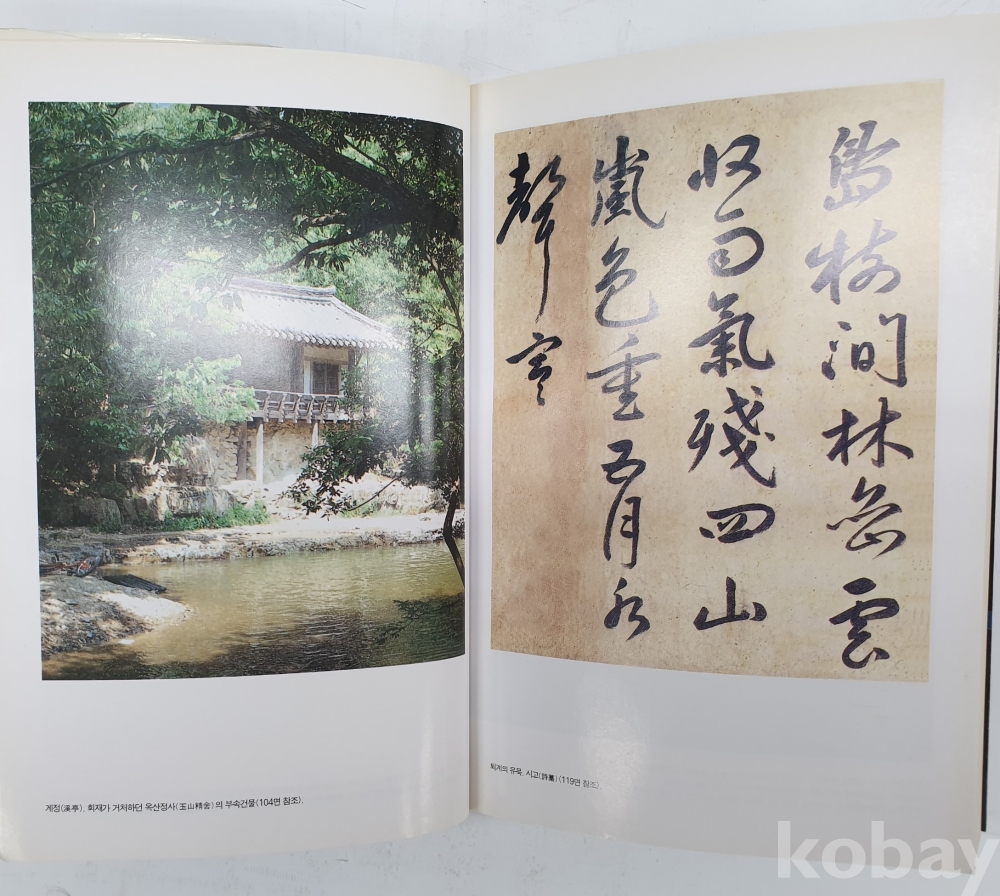 계정(溪亭). 회재가 거처하던 옥산정사(玉山精舍)의 부속건물(104면 참조).
鳥澗林雲
收雨氣殘四山
嵐色重五月水
聲寒
퇴계의 유묵. 시고(詩藁)(119면 참조).
kobay